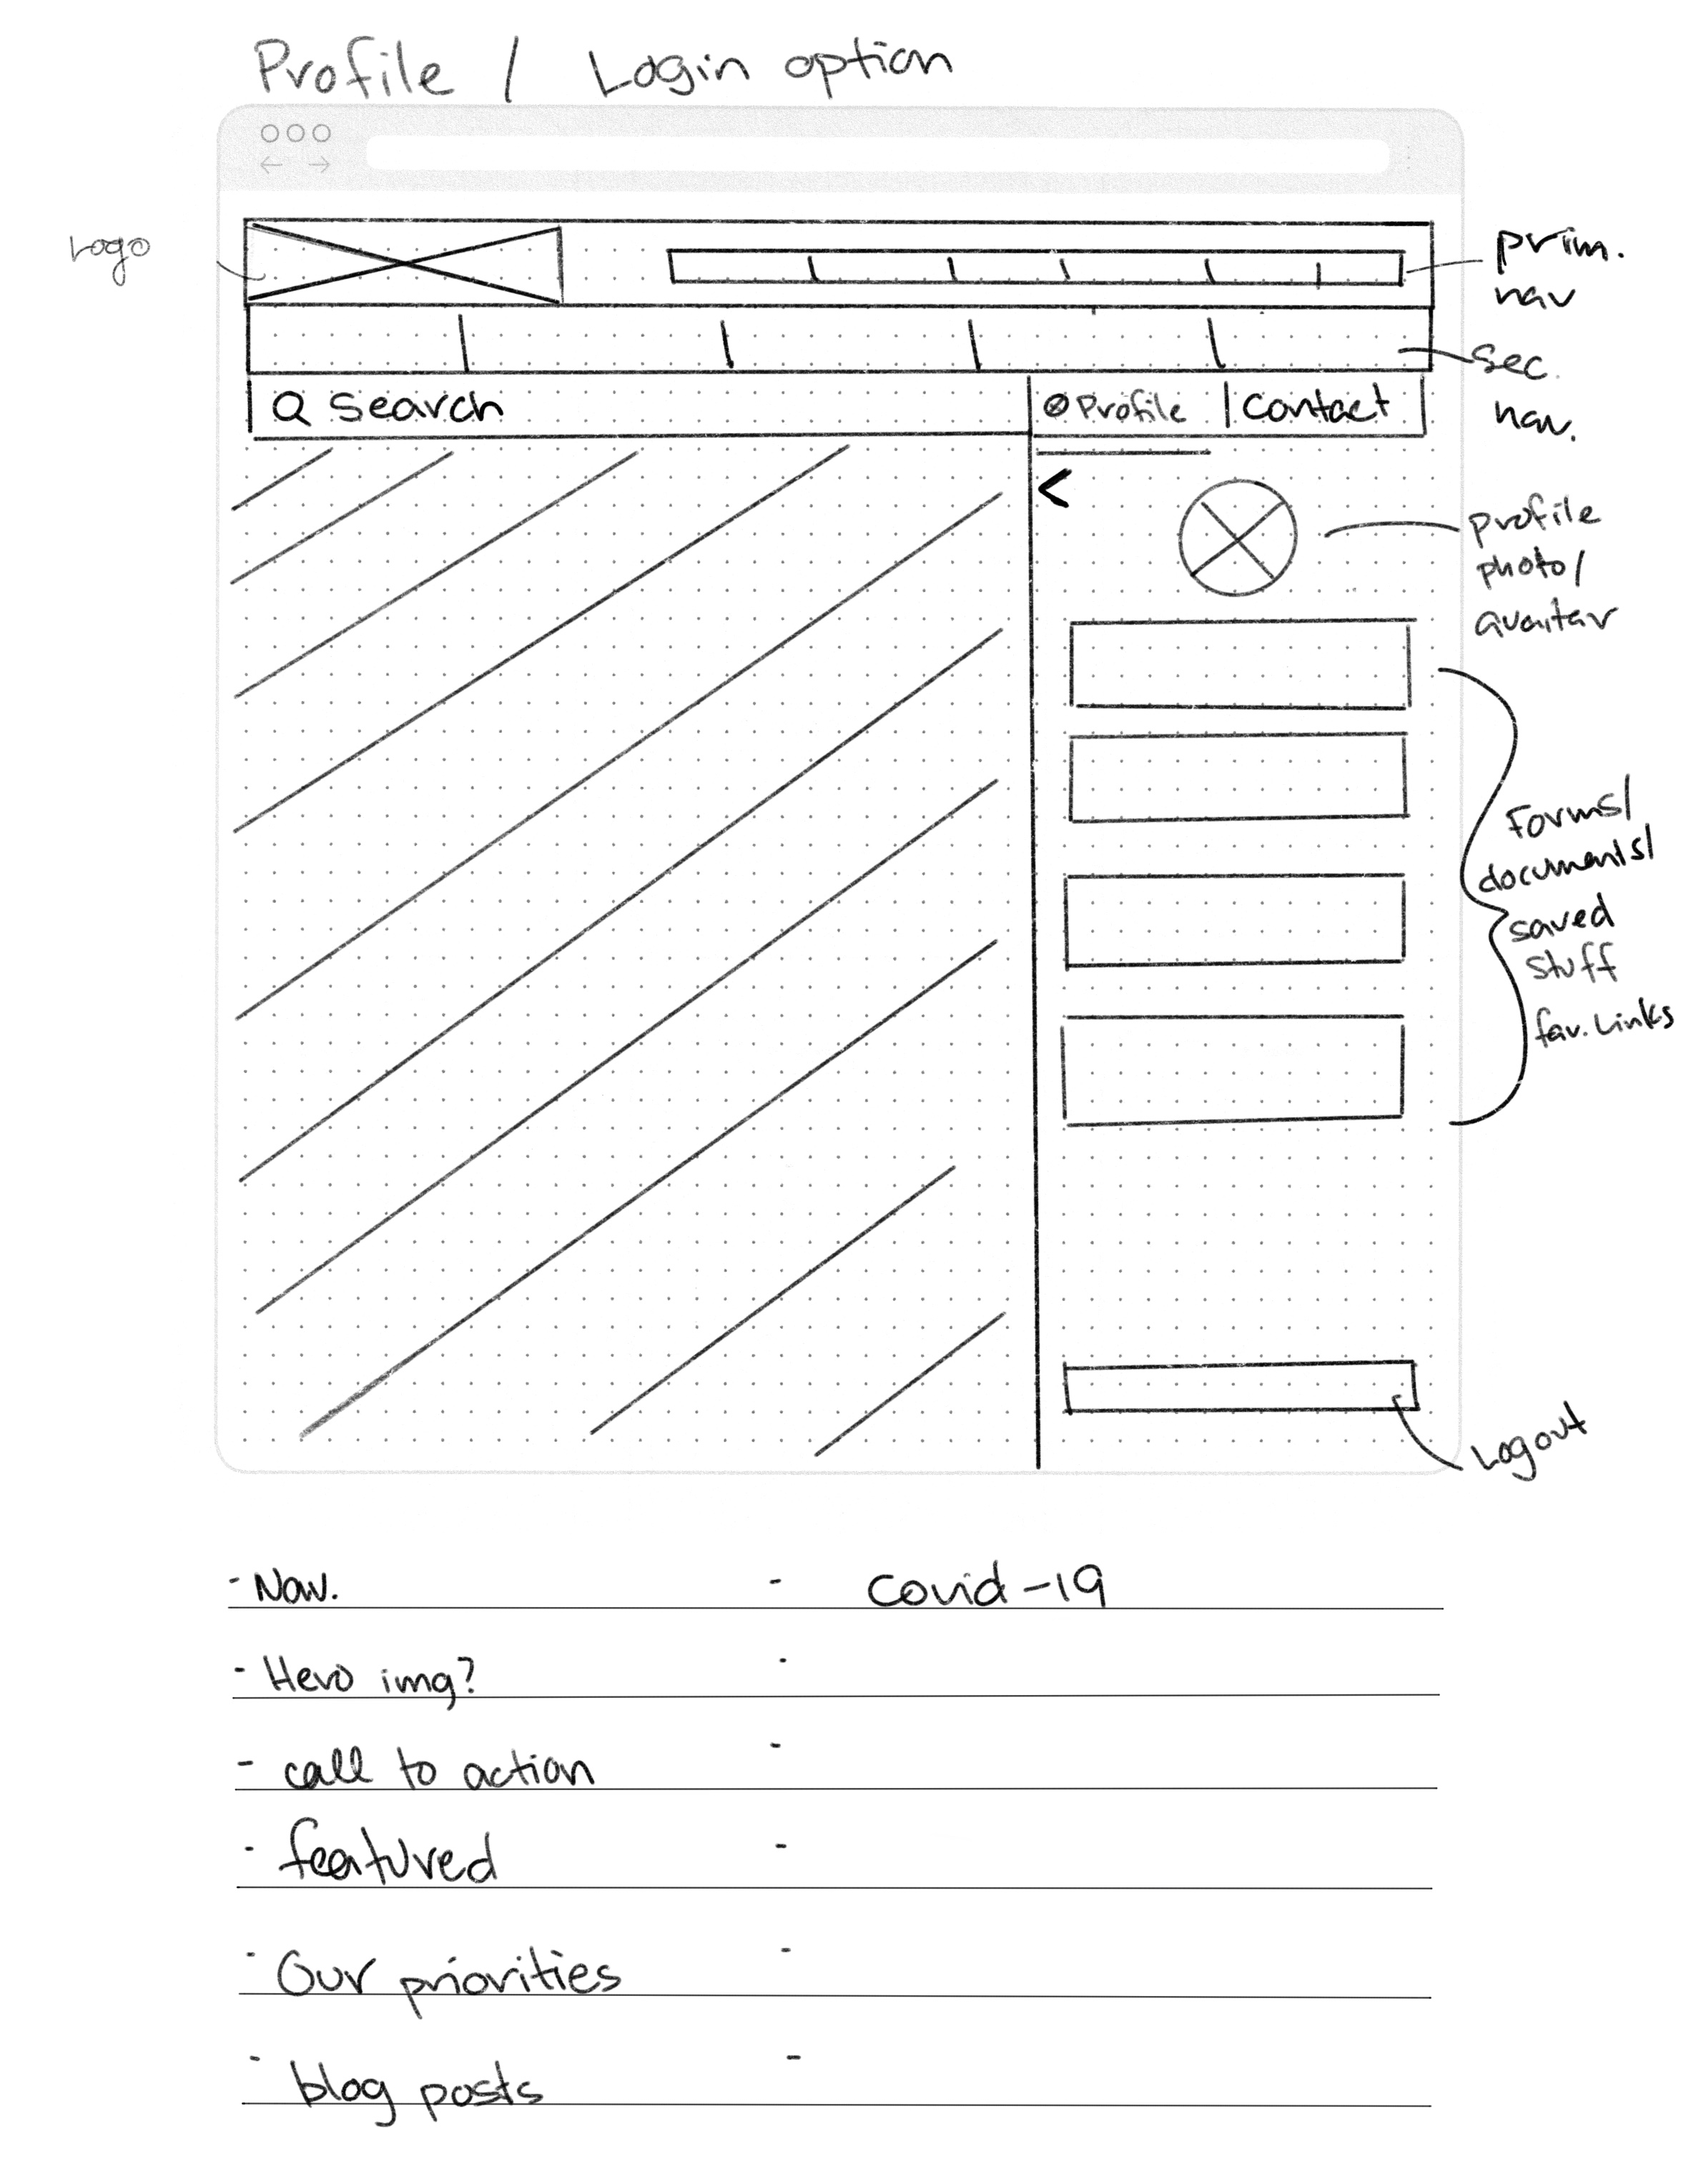 Profile / Login option
Logo
prim.
nav
sec.
nav.
Search
Profile
Contact
profile
photo/
avaitar
Forms/
documents/
saved
stuff
fav. Links
Logout
- Nav.
- Covid-19
- Hero img?
-
- call to action
-
- featured
-
- Our priorities
-
- blog posts
-